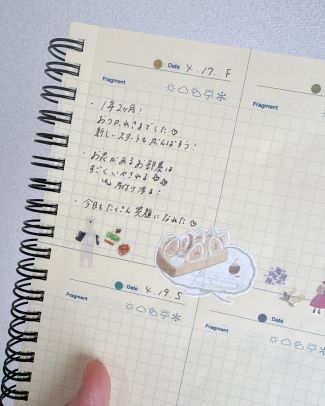 Date 4.17. F
Fragment
・1年2ヶ月！
おつかれさまでした♡
新しいスタートもがんばろう！
・お花があるお部屋は
すごくいやされる♡♡
片付け済み！
・今日もたくさん笑顔になれた♡
Date 4.19. S
Fragment
Date
Fragment